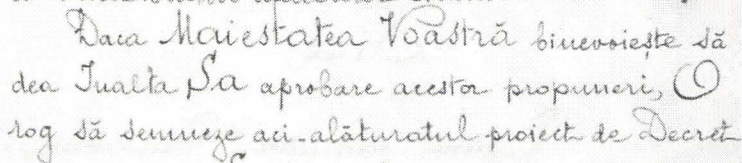 Daca Maiestatea Voastră binevoiește să
dea Inalta Sa aprobare acestor propuneri, O
rog să semneze aci-alăturatul proiect de Decret